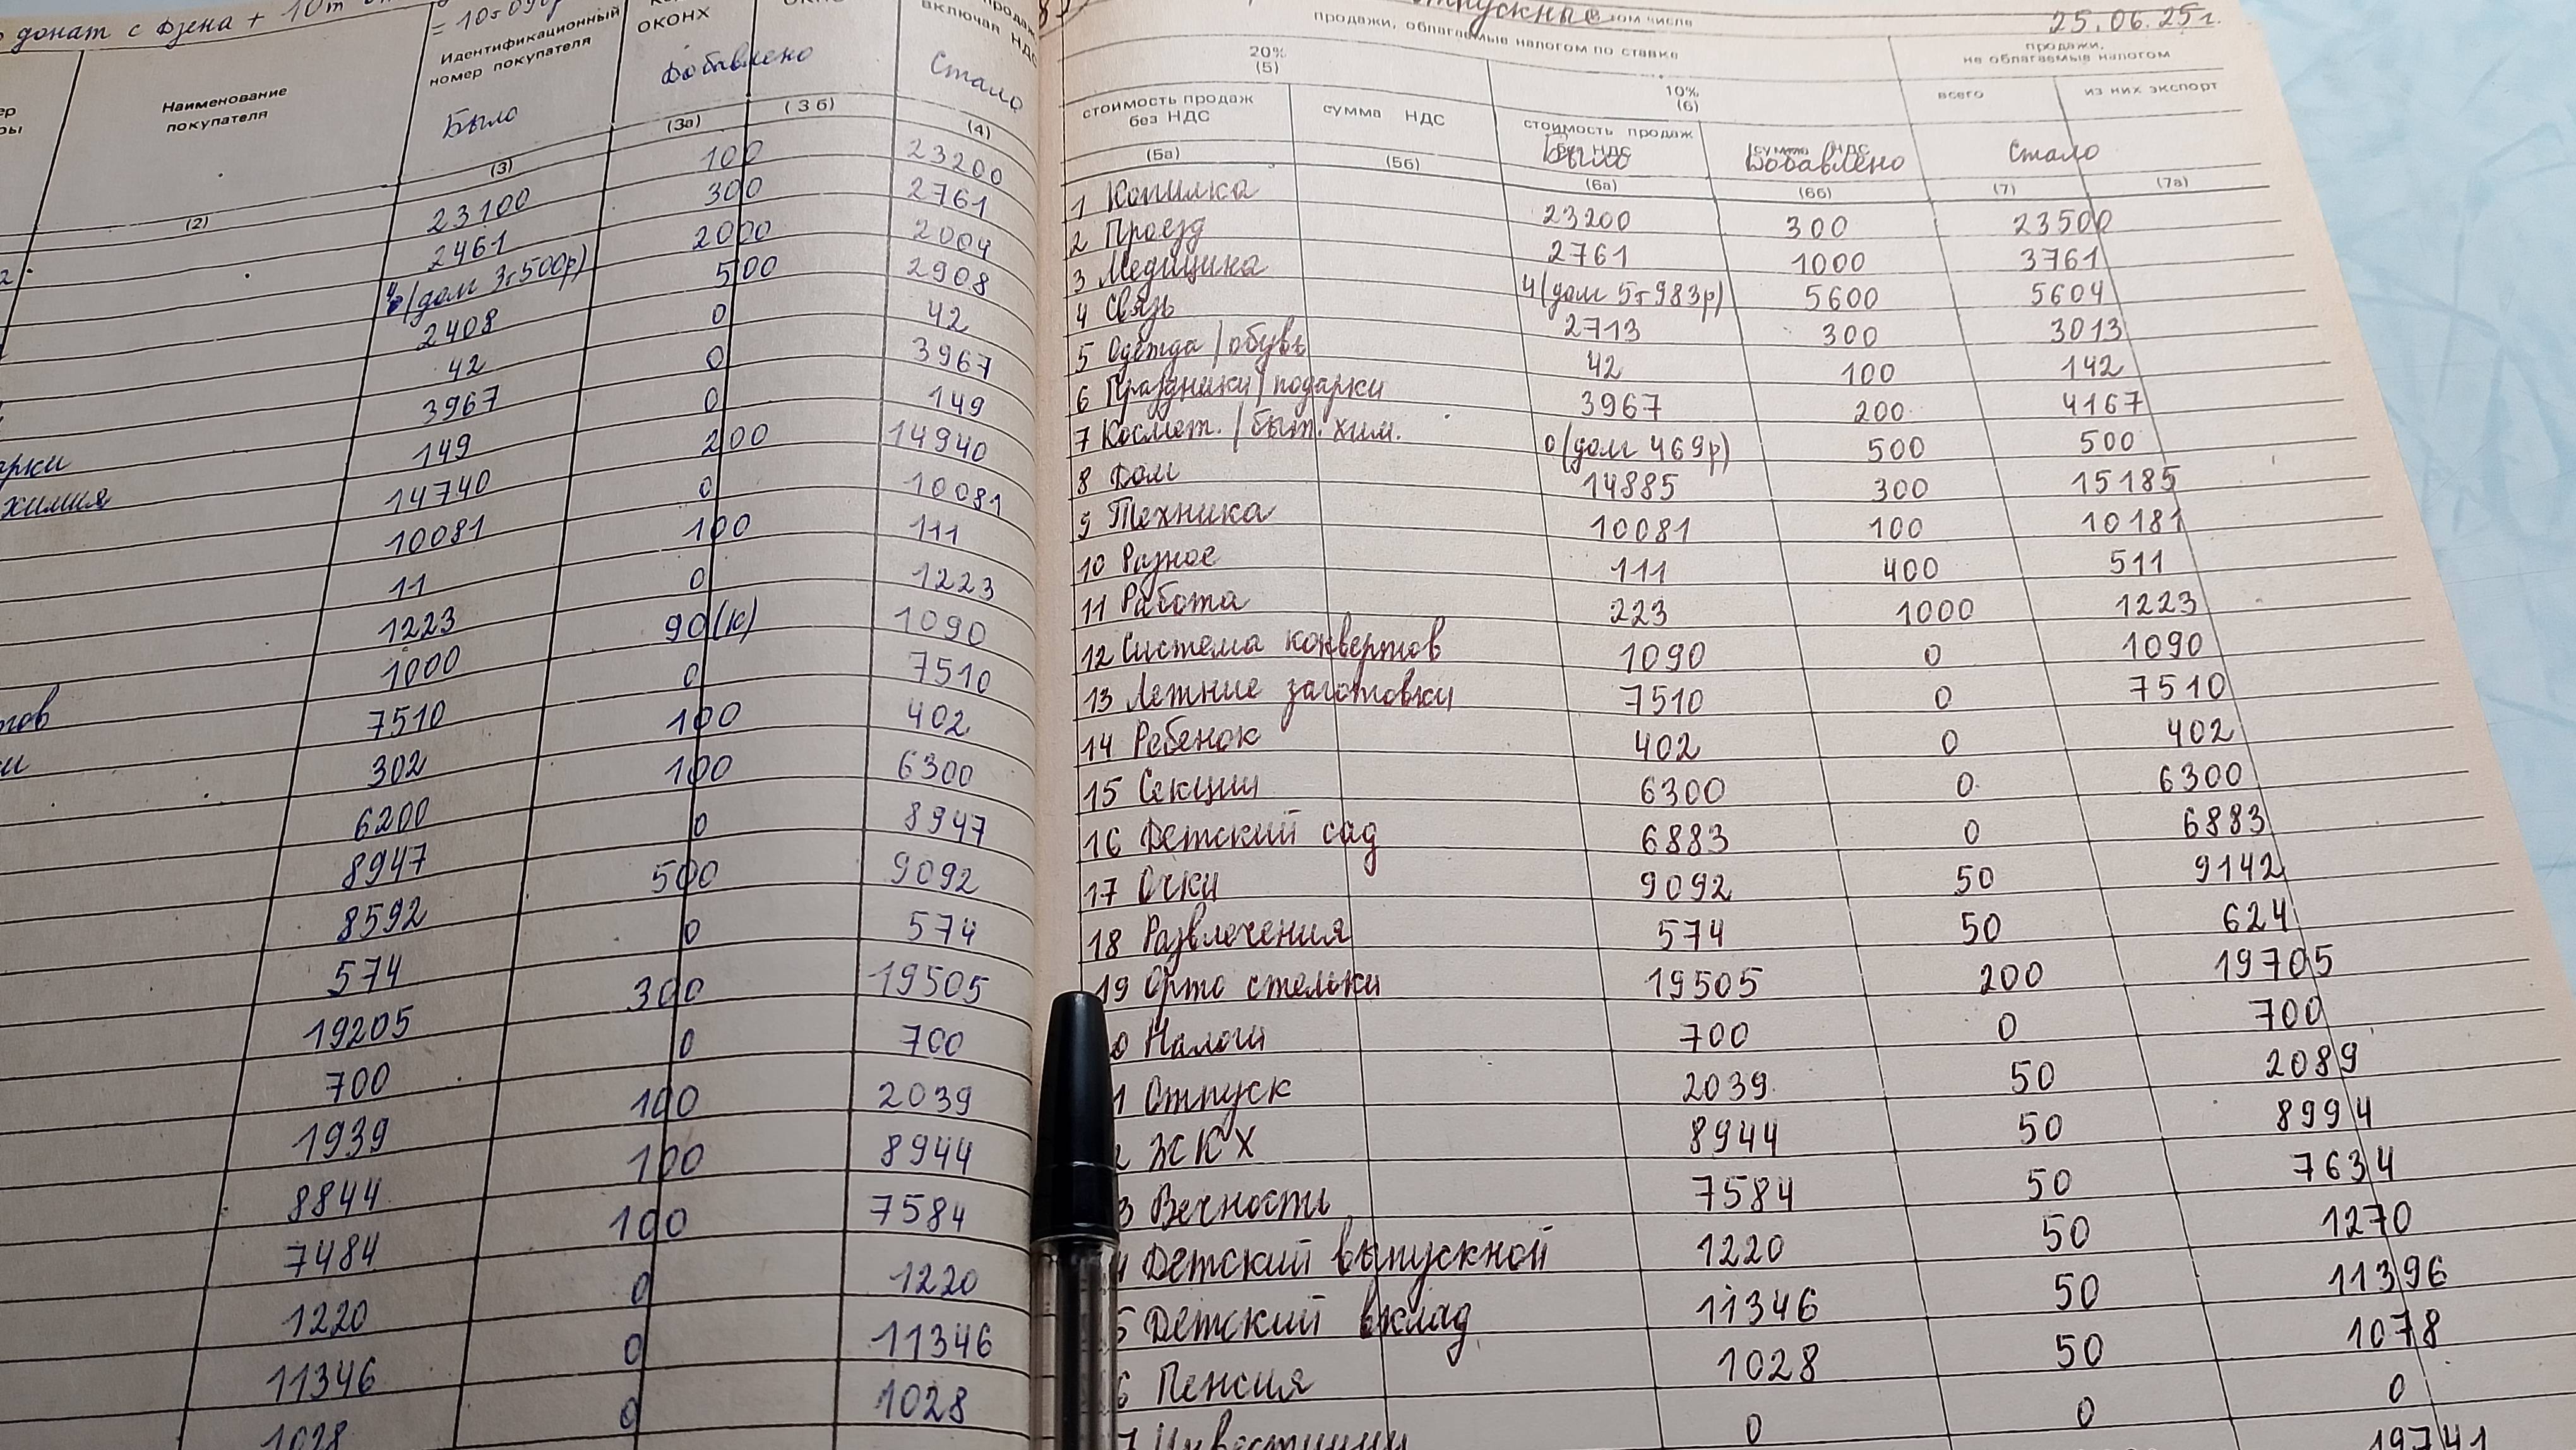 донат с Дзена + 10т
= 10т090р
Идентификационный
номер покупателя
ОКОНХ
включая НДС
Наименование
покупателя
Было
Добавлено
Стало
(2)
(3)
(3а)
(3 б)
(4)
23100 100 23200
2461 300 2761
4 (долг 3т500р) 2000 2004
2408 500 2908
42 0 42
3967 0 3967
149 0 149
14740 200 14940
10081 0 10081
11 100 111
1223 0 1223
1000 90(к) 1090
7510 0 7510
302 100 402
6200 100 6300
8947 0 8947
8592 500 9092
574 0 574
19205 300 19505
700 0 700
1939 100 2039
8844 100 8944
7484 100 7584
1220 0 1220
11346 0 11346
1028 0 1028
химия
25.06.25г.
в том числе
продажи, облагаемые налогом по ставке
продажи,
не облагаемые налогом
20%
(5)
10%
(6)
всего
из них экспорт
стоимость продаж
без НДС
сумма НДС
стоимость продаж
без НДС
сумма НДС
Было Добавлено Стало
(5а) (5б) (6а) (6б) (7) (7а)
1 Копилка 23200 300 23500
2 Проезд 2761 1000 3761
3 Медицина 4 (долг 5т983р) 5600 5604
4 Связь 2713 300 3013
5 Одежда/обувь 42 100 142
6 Праздники/подарки 3967 200 4167
7 Космет./быт. хим. 0 (долг 469р) 500 500
8 Дом 14885 300 15185
9 Техника 10081 100 10181
10 Разное 111 400 511
11 Работа 223 1000 1223
12 Система конвертов 1090 0 1090
13 Летние заготовки 7510 0 7510
14 Ребенок 402 0 402
15 Секции 6300 0 6300
16 Детский сад 6883 0 6883
17 Очки 9092 50 9142
18 Развлечения 574 50 624
19 Орто стельки 19505 200 19705
0 Налоги 700 0 700
1 Отпуск 2039 50 2089
2 ЖКХ 8944 50 8994
3 Вечность 7584 50 7634
4 Детский выпускной 1220 50 1270
5 Детский вклад 11346 50 11396
6 Пенсия 1028 50 1078
7 Инвестиции 0 0 0
19741